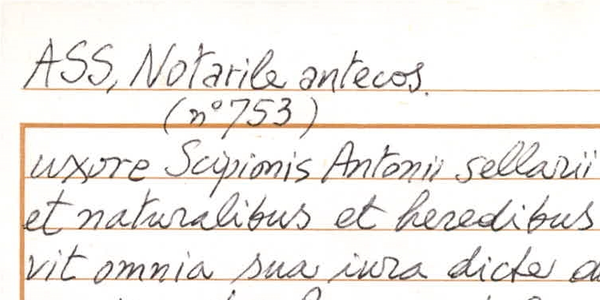 ASS, Notarile antecos.
(n° 753)
uxore Scipionis Antonii sellarii
et naturalibus et heredibus
vit omnia sua iura dicte